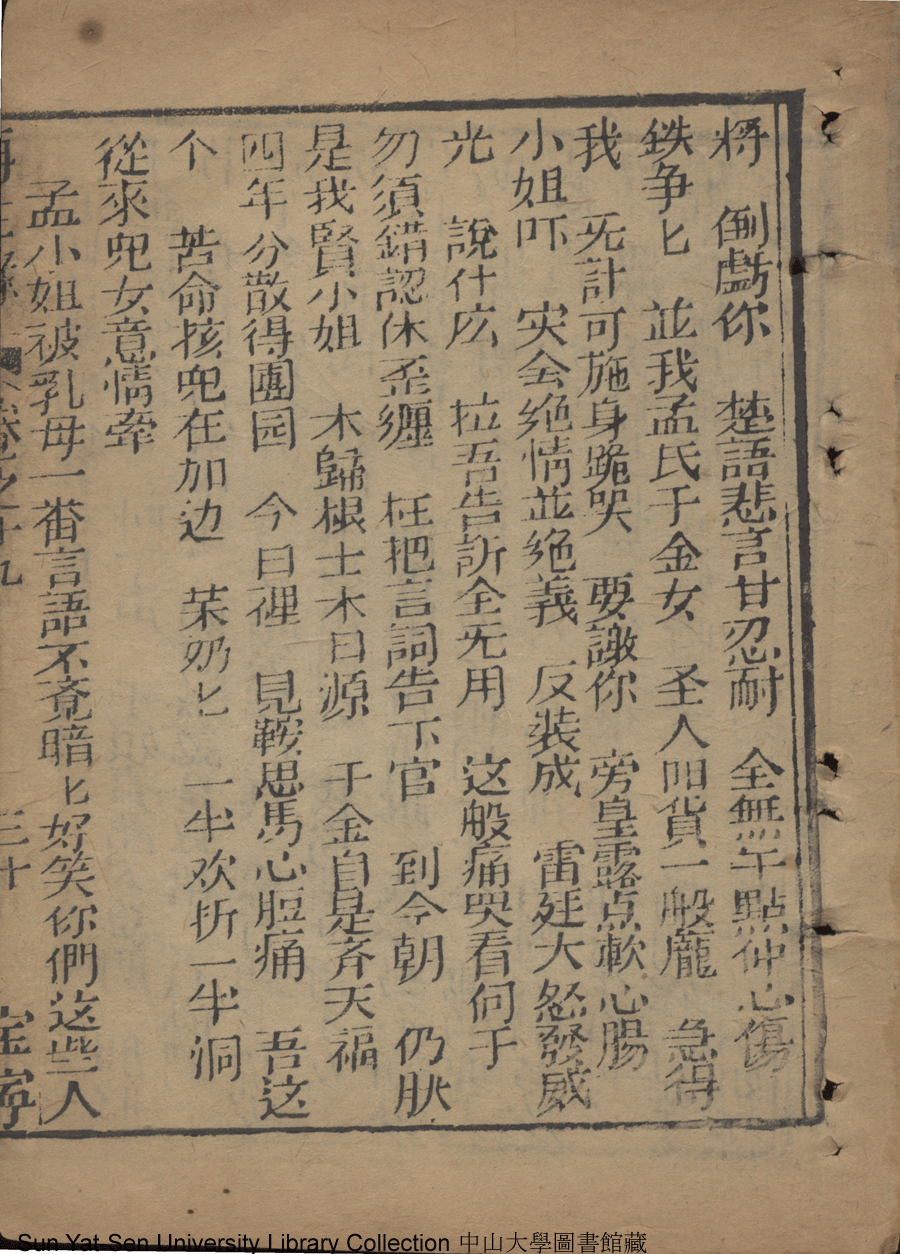 将 倒戱你 楚語悲言甘忍耐 全無千點仲心傷
鉄争匕 並我孟氏千金女 圣人阳貨一般龐 急得
我 旡計可施身跪哭 要諏你 旁皇露点軟心腸
小姐吓 实会绝情並绝義 反装成 雷廷大怒發威
光 說什庅 拉吾告訴全旡用 这般痛哭看何于
勿須錯認休歪纒 枉把言詞告下官 到今朝 仍肰
是我賢小姐 木歸根土木日源 千金自是斉天福
四年分散得團园 今日裡 見鞍思馬心脰痛 吾这
个 苦命核兜在加边 苿奶匕 一半欢折一半洞
從來兜女意情牽
孟小姐被乳母一番言語不竟暗匕好笑你們这些人
卷之十九 三十